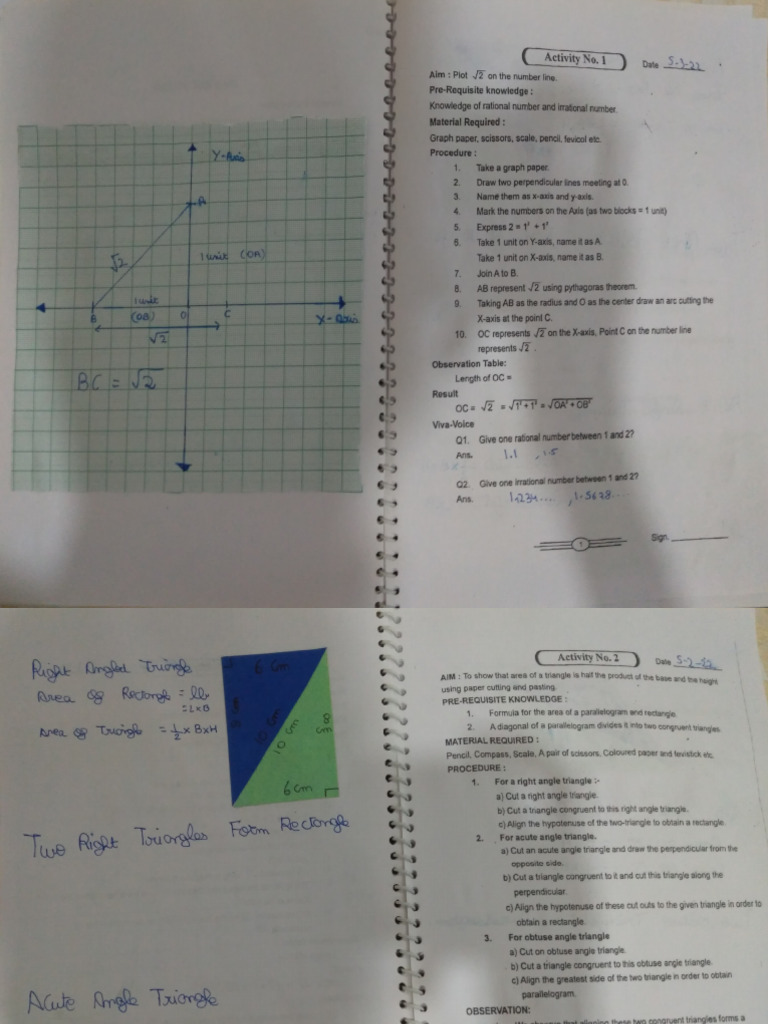 Y-Axis
A
√2
1 unit (OA)
1 unit
B (OB) O C X-Axis
√2
BC = √2
Activity No. 1
Date 5-3-22
Aim : Plot √2 on the number line.
Pre-Requisite knowledge :
Knowledge of rational number and irrational number.
Material Required :
Graph paper, scissors, scale, pencil, fevicol etc.
Procedure :
1. Take a graph paper.
2. Draw two perpendicular lines meeting at 0.
3. Name them as x-axis and y-axis.
4. Mark the numbers on the Axis (as two blocks = 1 unit)
5. Express 2 = 1² + 1²
6. Take 1 unit on Y-axis, name it as A.
Take 1 unit on X-axis, name it as B.
7. Join A to B.
8. AB represent √2 using pythagoras theorem.
9. Taking AB as the radius and O as the center draw an arc cutting the
X-axis at the point C.
10. OC represents √2 on the X-axis, Point C on the number line
represents √2 .
Observation Table:
Length of OC =
Result
OC = √2 = √1² + 1² = √OA² + OB²
Viva-Voice
Q1. Give one rational number between 1 and 2?
Ans. 1.1 , 1.5
Q2. Give one irrational number between 1 and 2?
Ans. 1.234.... , 1.5678...
1
Sign.
Right Angled Triangle
Area of Rectangle =
= L×B
Area of Triangle = ½ × B×H
6 cm
8 cm
10 cm
10 cm
8 cm
6 cm
Two Right Triangles Form Rectangle
Acute Angle Triangle
Activity No. 2
Date 5-2-22
AIM : To show that area of a triangle is half the product of the base and the height
using paper cutting and pasting.
PRE-REQUISITE KNOWLEDGE :
1. Formula for the area of a parallelogram and rectangle.
2. A diagonal of a parallelogram divides it into two congruent triangles.
MATERIAL REQUIRED :
Pencil, Compass, Scale, A pair of scissors, Coloured paper and fevistick etc.
PROCEDURE :
1. For a right angle triangle :-
a) Cut a right angle triangle.
b) Cut a triangle congruent to this right angle triangle.
c) Align the hypotenuse of the two-triangle to obtain a rectangle.
2. For acute angle triangle.
a) Cut an acute angle triangle and draw the perpendicular from the
opposite side.
b) Cut a triangle congruent to it and cut this triangle along the
perpendicular.
c) Align the hypotenuse of these cut outs to the given triangle in order to
obtain a rectangle.
3. For obtuse angle triangle
a) Cut on obtuse angle triangle.
b) Cut a triangle congruent to this obtuse angle triangle.
c) Align the greatest side of the two triangle in order to obtain
parallelogram.
OBSERVATION:
these two congruent triangles forms a